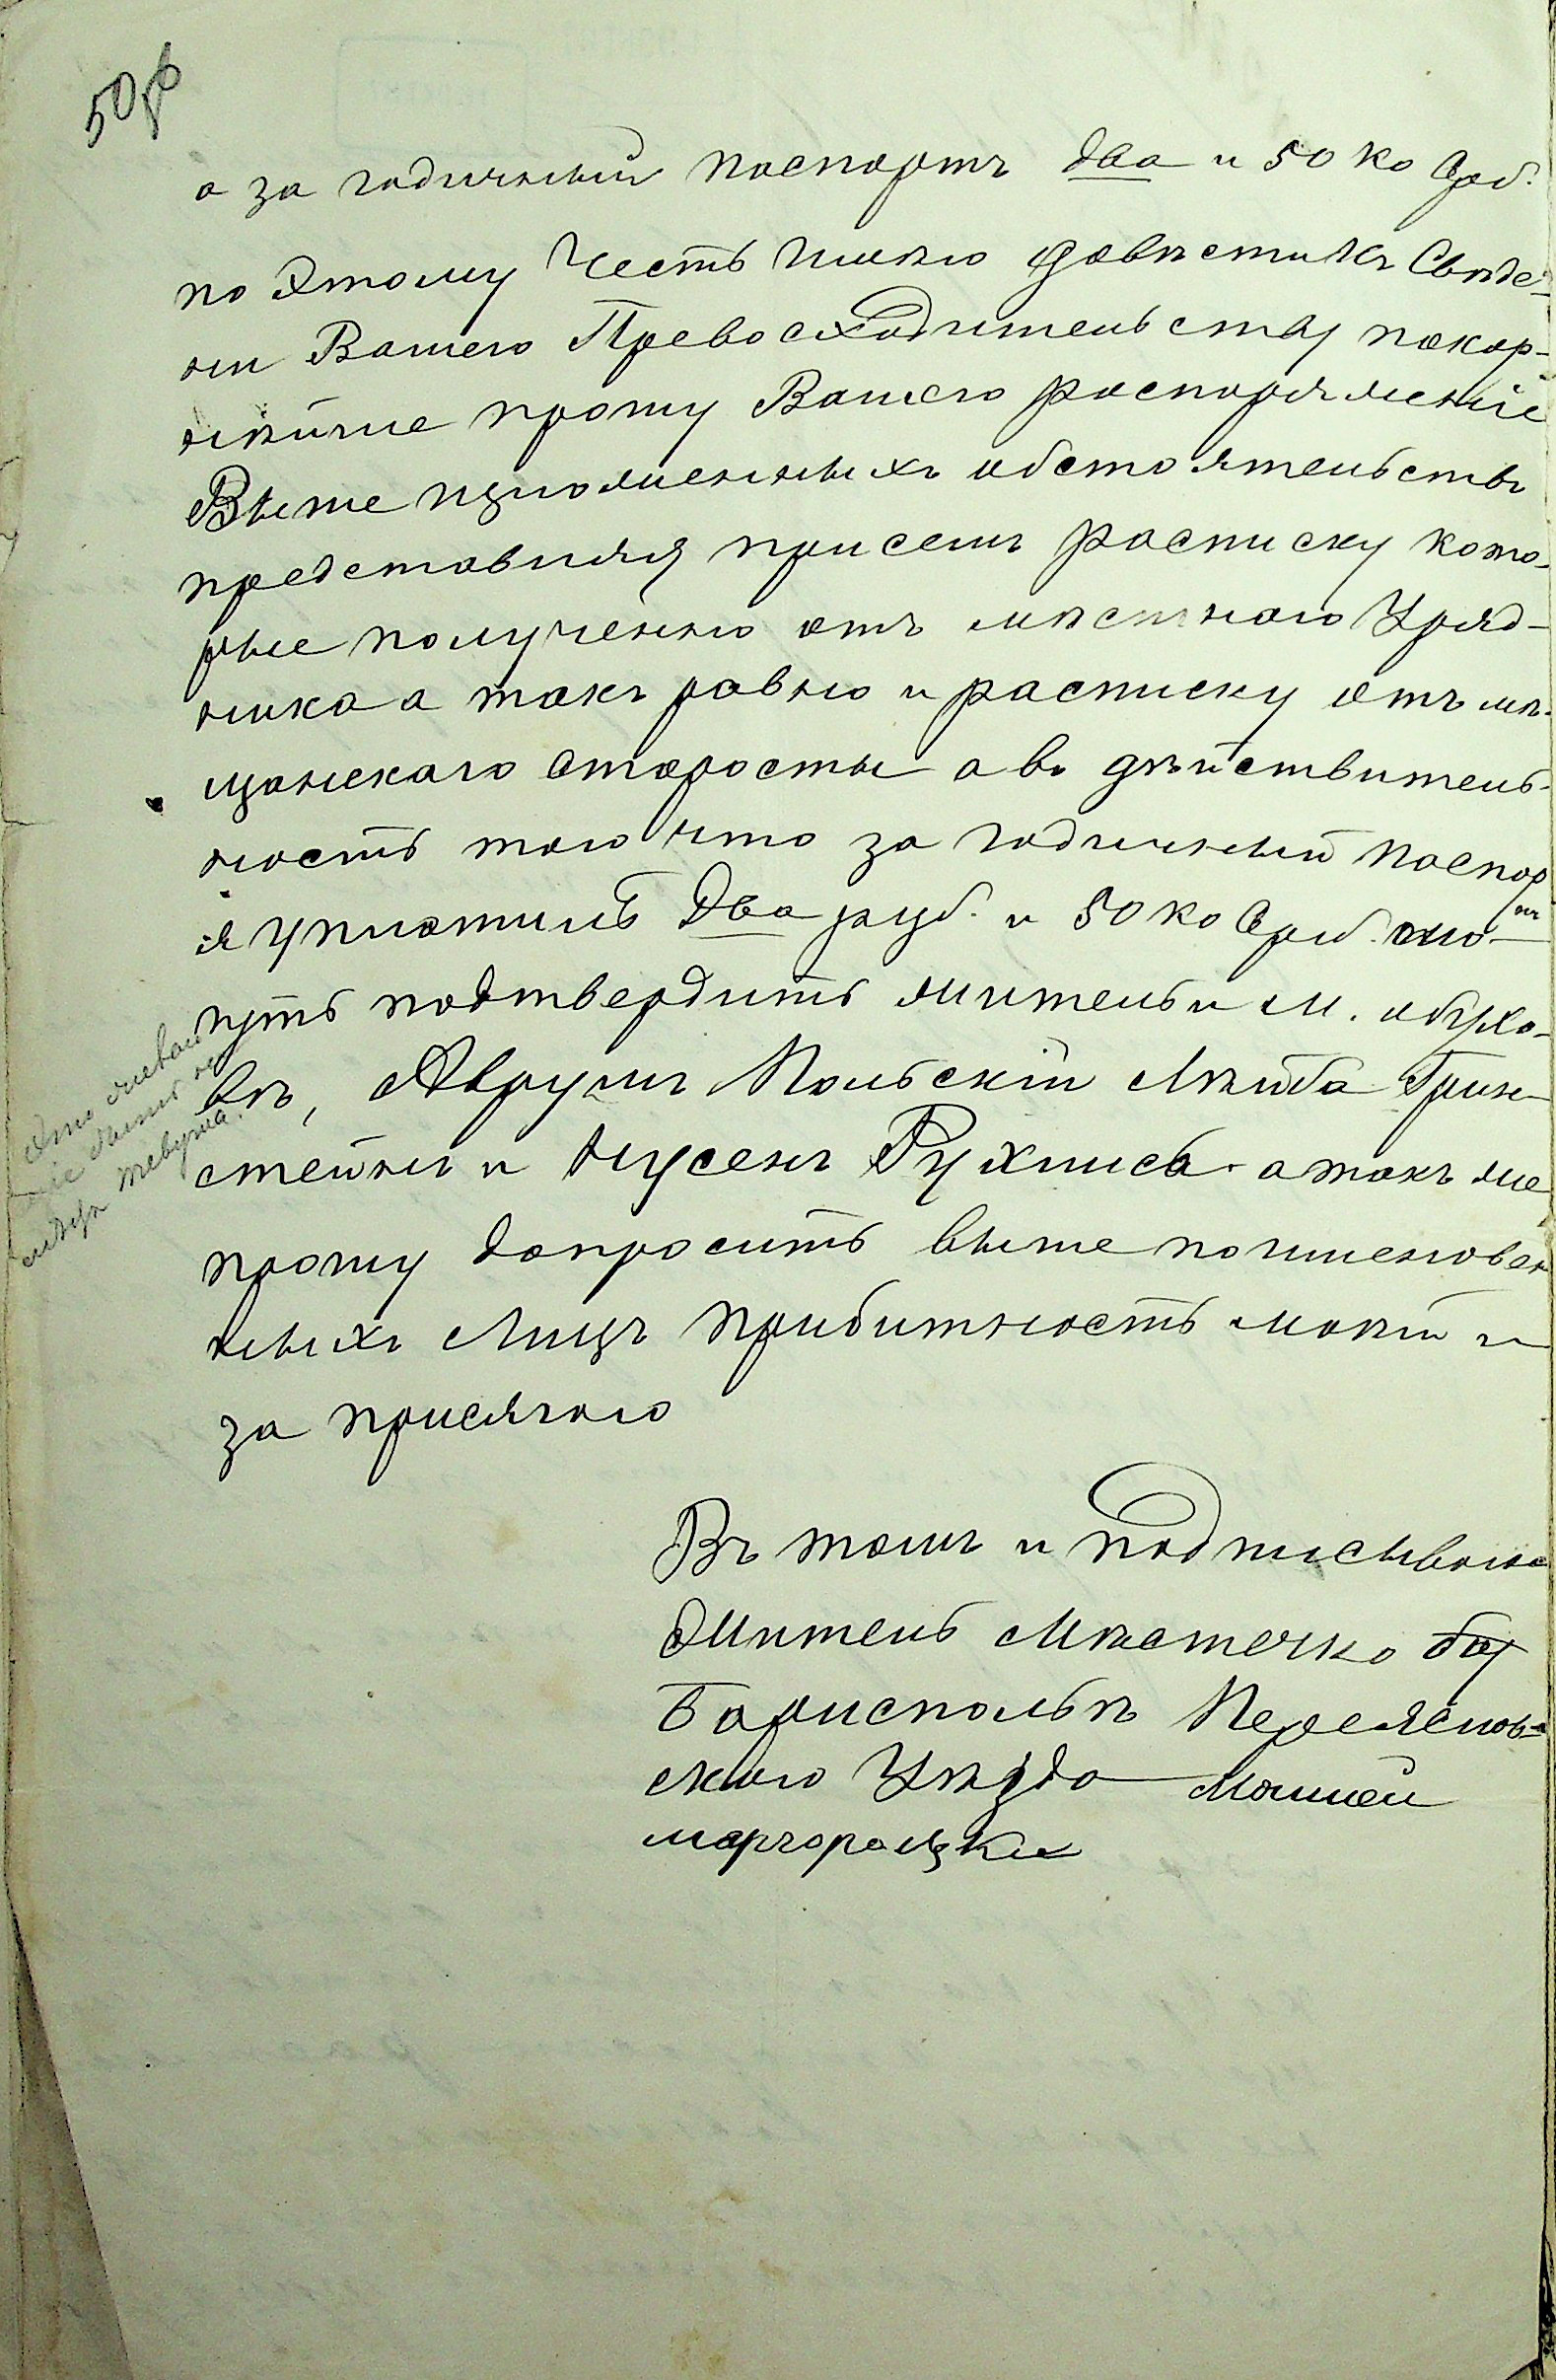 50об
а за годичный паспортъ два и 50 ко Сраб.
по этому Честь имѣю Довѣсти къ Свѣде-
ни Вашего Превосходительству покор-
нѣйше прошу Вашего распоряженiе
Выше изложенныхъ обстоятельствъ
представляя присемъ расписку кото-
рые полученно отъ мѣстного Уряд-
ника а такъ равно и расписку отъ мѣ-
щанскаго Старосты а въ дѣйствитель-
ность того что за годичный паспор
тъ
я уплатилъ Два руб. и 50 ко Сраб. мо-
гутъ подтвердить жительи м. обухо-
въ, Аврумъ Польскiй Лѣйба Грин-
стейнъ и Нусенъ Рухлисъ а такъ же
прошу допросить выше поименован
ныхъ Лицъ прибытность моѣй и
за присягою
Въ томъ и подписываюс
Житель Мѣстечко
Борисполь Переяслов-
скаго Уѣзда Мошкой
маргоролцки